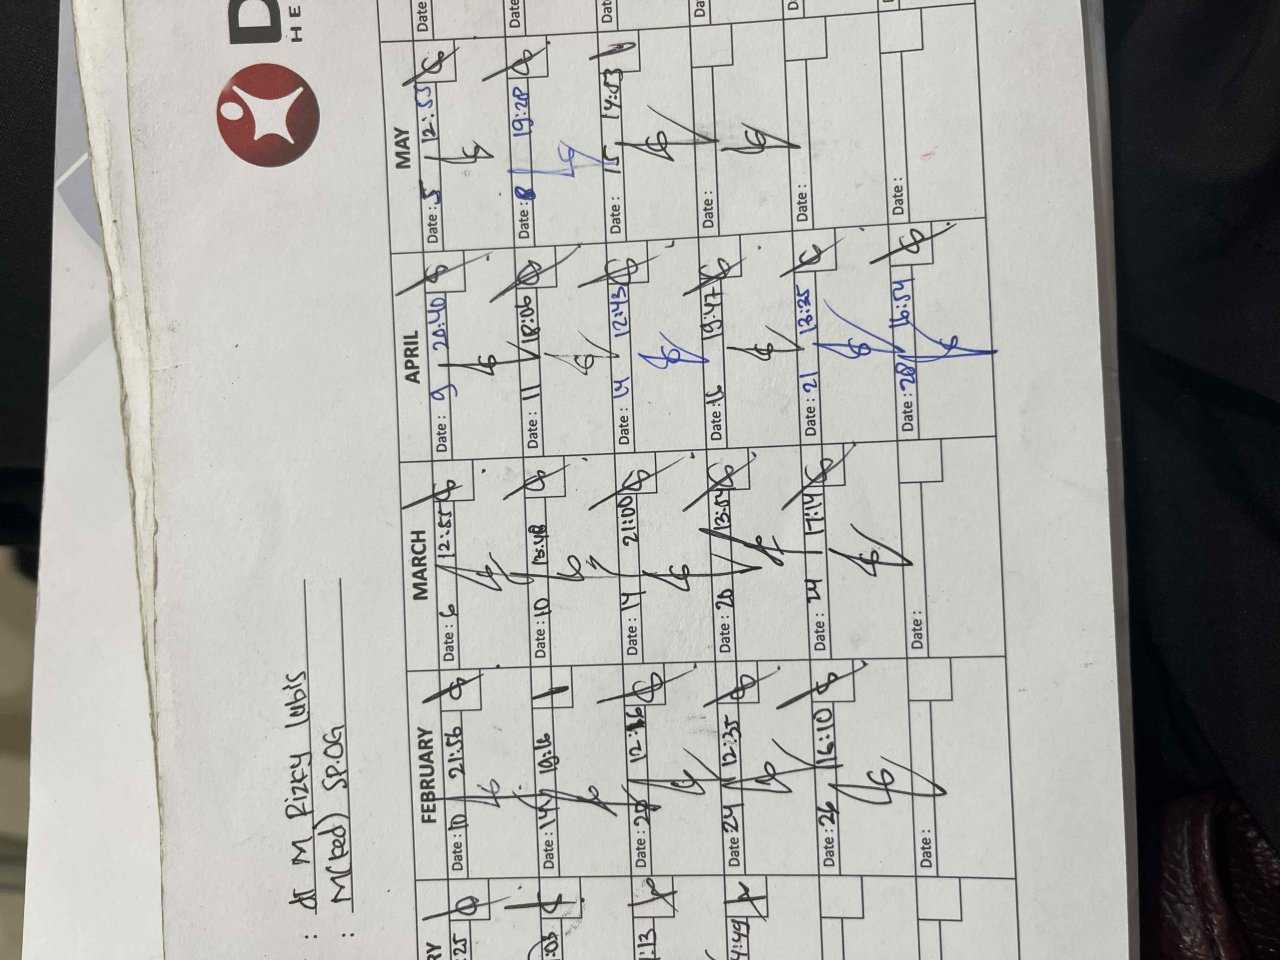 D
HE
: dr M Rizky Lubis
: M(Ked) SP.OG
RY FEBRUARY MARCH APRIL MAY
:25 Date : 10 21:56 Date : 6 12:55 Date : 9 20:40 Date : 5 12:55 Date
:03 Date : 14 19:16 Date : 10 Date : 11 18:06 Date : 8 19:28 Date
1:13 Date : 20 Date : 14 21:00 Date : 14 12:43 Date : 15 14:53 Dat
4:49 Date : 24 12:35 Date : 20 13:54 Date : 16 19:47 Date : Da
Date : 26 16:10 Date : 24 17:14 Date : 21 13:25 Date : D
Date : Date : Date : 28 16:54 Date :